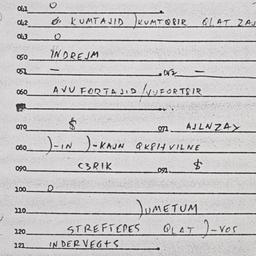 041 0
042 KUMTAJID )KUMTQRIR QLAT ZAJ
043 0
050 INDREJM
051 — 052 —
060 AVUFORTAJID /VUFORTRIR
070 $ 071 AJLNZAY
080 )-IN )-KAJN QKRHVILNE
090 C3RIK 091 $
100 0
110 )UMETUM
120 STREFTEDES QLAT )-VOS
121 INDERVEGTS